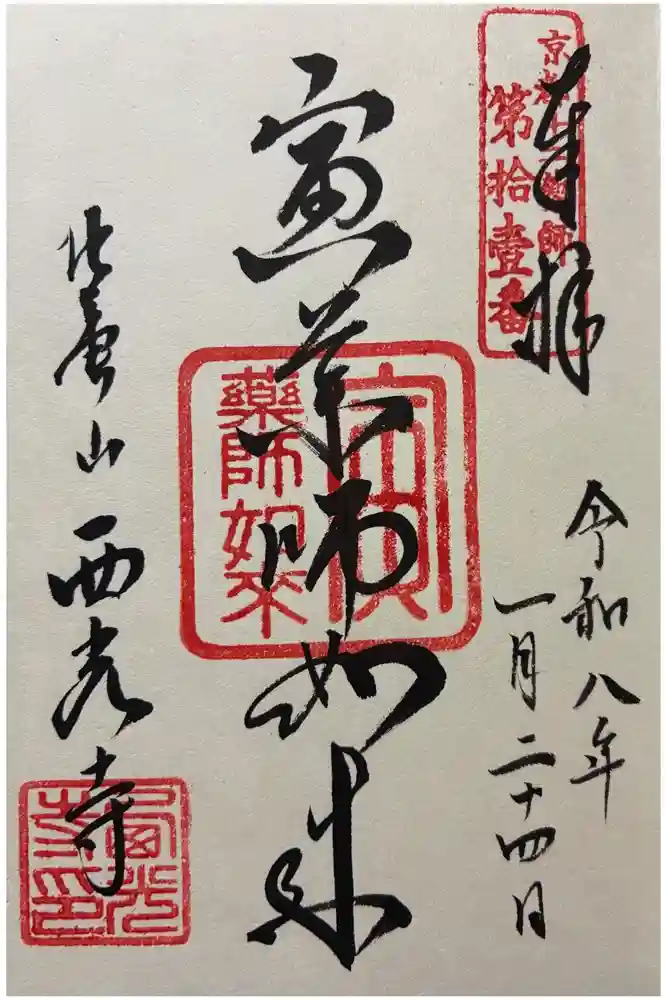 奉拝
京都十二薬師
第拾壹番
令和八年
一月二十四日
寅薬師如来
寅
藥師如來
西光寺
西光
寺印